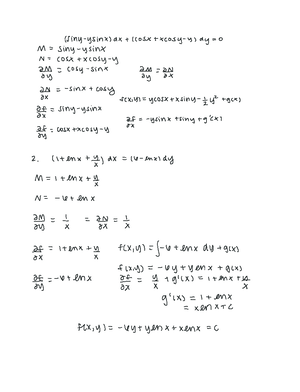 (siny-ysinx)dx + (cosx+xcosy-y) dy = 0
M = siny-ysinx
N = cosx+xcosy-y
∂M/∂y = cosy-sinx ∂M/∂y = ∂N/∂x
∂N/∂x = -sinx + cosy
f(x,y) = ycosx+xsiny-1/2 y² + g(x)
∂f/∂x = siny-ysinx
∂f/∂x = -ysinx+siny+g'(x)
∂f/∂y = cosx+xcosy-y
2. (1+lnx+y/x) dx = (6-lnx)dy
M = 1+lnx+y/x
N = -6+lnx
∂M/∂y = 1/x = ∂N/∂x = 1/x
∂f/∂x = 1+lnx+y/x f(x,y) = ∫-6+lnx dy + g(x)
f(x,y) = -6y+ylnx + g(x)
∂f/∂y = -6+lnx ∂f/∂x = y/x + g'(x) = 1+lnx+y/x
g'(x) = 1+lnx
= xlnx+c
f(x,y) = -6y+ylnx+xlnx = C